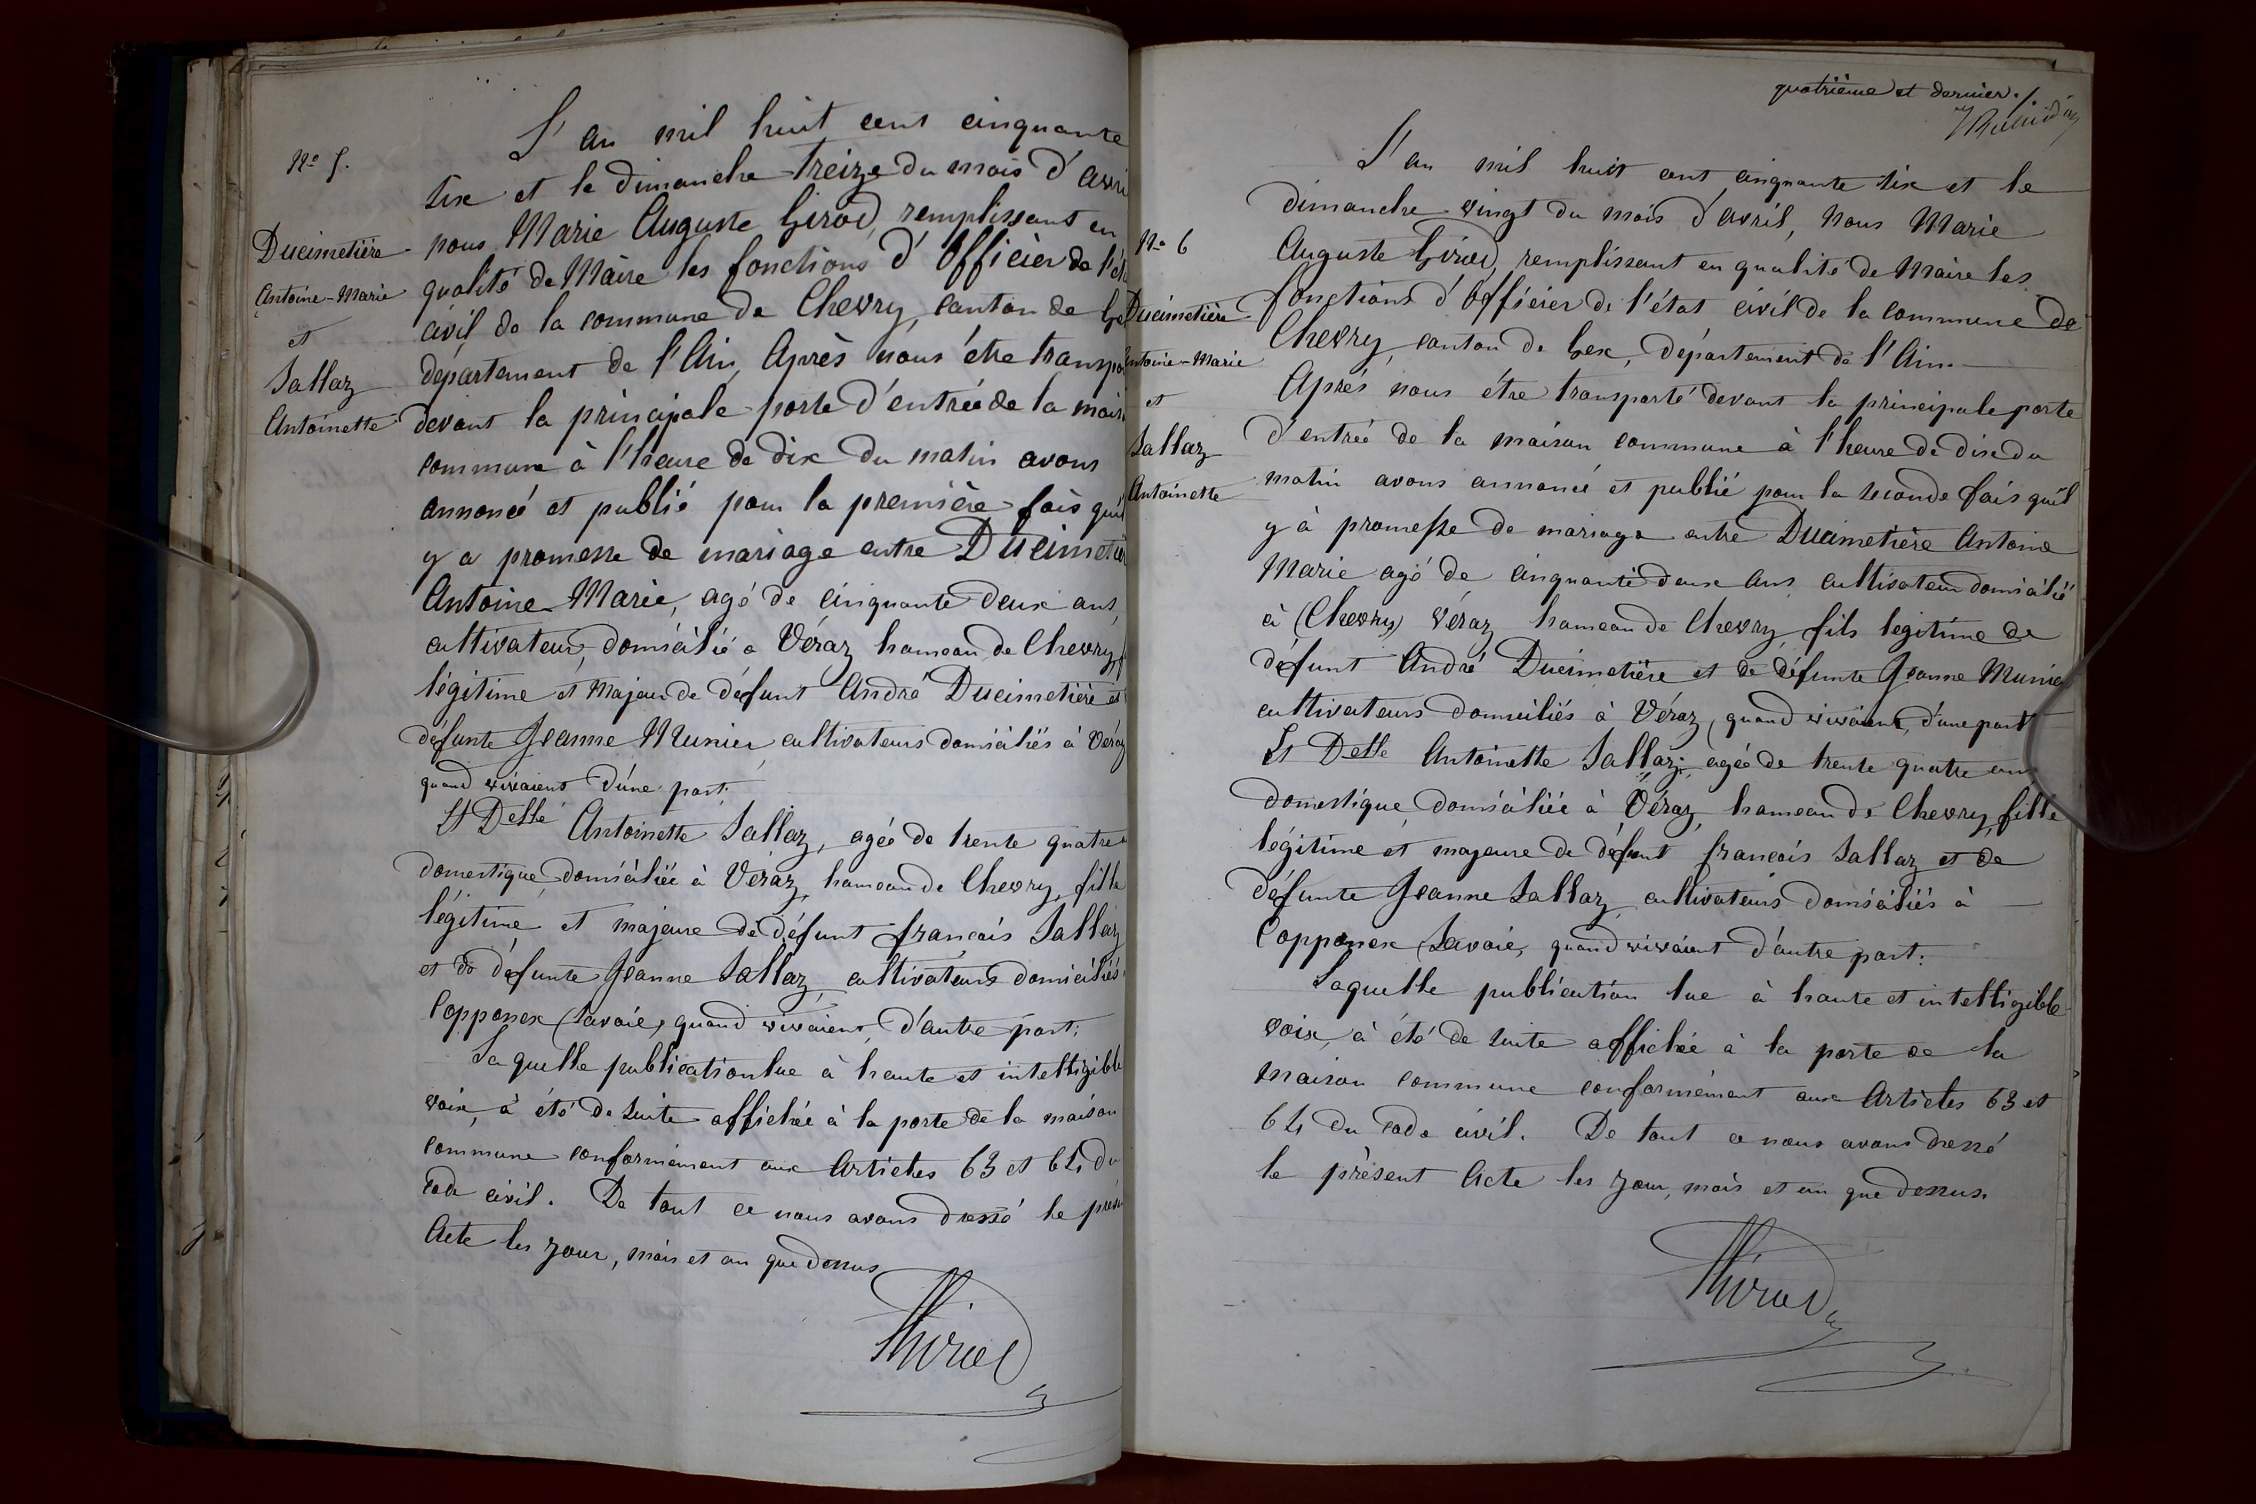 L'an mil huit cent cinquante
six et le dimanche treize du mois d'avri
nous Marie Auguste Girod, remplissant en
qualité de Maire les fonctions d'Officier de l'ét
civil de la commune de Chevry, canton de Ge
département de l'Ain, Après nous être transpo
devant la principale porte d'entrée de la mais
commune à l'heure de dix du matin avons
annoncé et publié pour la première fois qu'il
y a promesse de mariage entre Ducimetiè
Antoine-Marie, agé de cinquante deux ans,
cultivateur, domicilié a Véraz hameau de Chevry, f
légitime et Majeur de défunt André Ducimetière et
défunte Jeanne Munier, cultivateurs domiciliés à Véraz
quand vivaient d'une part;
Et Delle Antoinette Sallaz, agée de trente quatre a
domestique, domiciliée à Véraz, hameau de Chevry, fille
légitime et majeure de défunt francois Sallaz
et de défunte Jeanne Sallaz, cultivateurs domiciliés
Copponex (Savoie, quand vivaient, d'autre part;
Laquelle publication lue à haute et intelligible
voix, à été de suite affichée à la porte de la maison
commune conformément aux Articles 63 et 64 du
code civil. De tout ce nous avons dressé le prése
Acte les jour, mois et an que dessus
AGirod
No 5.
Ducimetière
Antoine-Marie
et
Sallaz
Antoinette
quatrième et dernier ./.
L'an mil huit cent cinquante six et le
dimanche vingt du mois d'avril, Nous Marie
Auguste Girod, remplissant en qualité de Maire les
fonctions d'Officier de l'état civil de la commune de
Chevry, canton de Gex, département de l'Ain.
Après nous être transporté devant la principale porte
d'entrée de la maison commune à l'heure de dix du
matin avons annoncé et publié pour la seconde fois qu'il
y à promesse de mariage entre Ducimetière Antoine
Marie agé de cinquante deux ans, cultivateur domicilié
à (Chevry) Véraz hameau de Chevry, fils légitime de
défunt André Ducimetière et de défunte Jeanne Munier
cultivateurs domiciliés à Véraz, quand vivaient, d'une part
Et Delle Antoinette Sallaz, agée de trente quatre ans
domestique, domiciliée à Véraz, hameau de Chevry, fille
légitime et majeure de défunt francois Sallaz et de
défunte Jeanne Sallaz, cultivateurs domiciliés à
Copponex (Savoie, quand vivaient d'autre part.
Laquelle publication lue à haute et intelligible
voix, à été de suite affichée à la porte de la
maison commune conformément aux Articles 63 et
64 du code civil. De tout ce nous avons dressé
le présent Acte les jour, mois et an que dessus.
AGirod
No 6
Ducimetière
ntoine-Marie
et
Sallaz
Antoinette